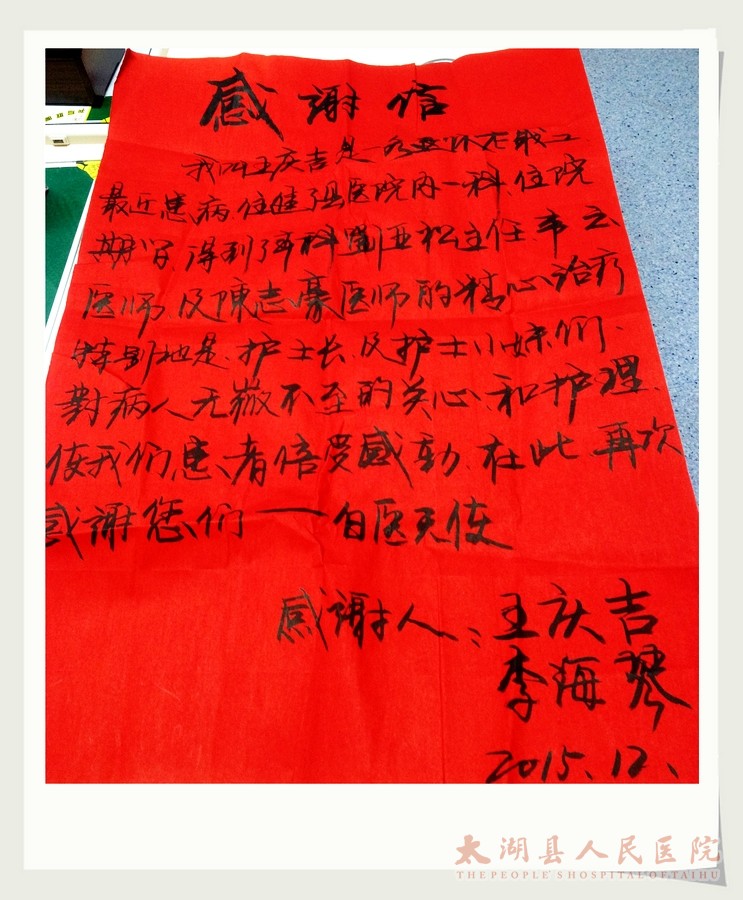 感谢信
我叫王庆吉是一名 退休老职工
最近患病.住 医院内一科.住院
期间.得到了本科 主任.韦云
医师.及陳志豪医师的精心治疗
特别地是.护士长.及护士小妹们.
對病人无微不至的关心.和护理.
使我们患者倍受感动.在此再次
感谢您们——白医天使
感谢人:王庆吉
李海琴
2015.12.
太湖县人民医院
THE PEOPLE'S HOSPITAL OF TAIHU